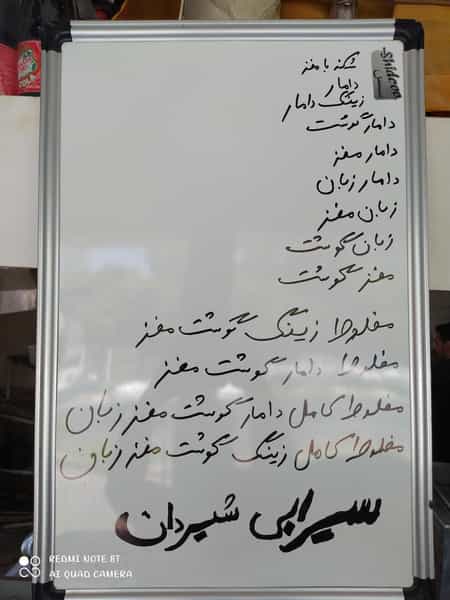 Shidco
شکنه با مغز
دامار
زینگ دامار
دامار گوشت
دامار مغز
دامار زبان
زبان مغز
زبان گوشت
مغز گوشت
مخلوط زینگ گوشت مغز
مخلوط دامار گوشت مغز
مخلوط کامل دامار گوشت مغز زبان
مخلوط کامل زینگ گوشت مغز زبان
سیرابی شیردان
REDMI NOTE 8T
AI QUAD CAMERA